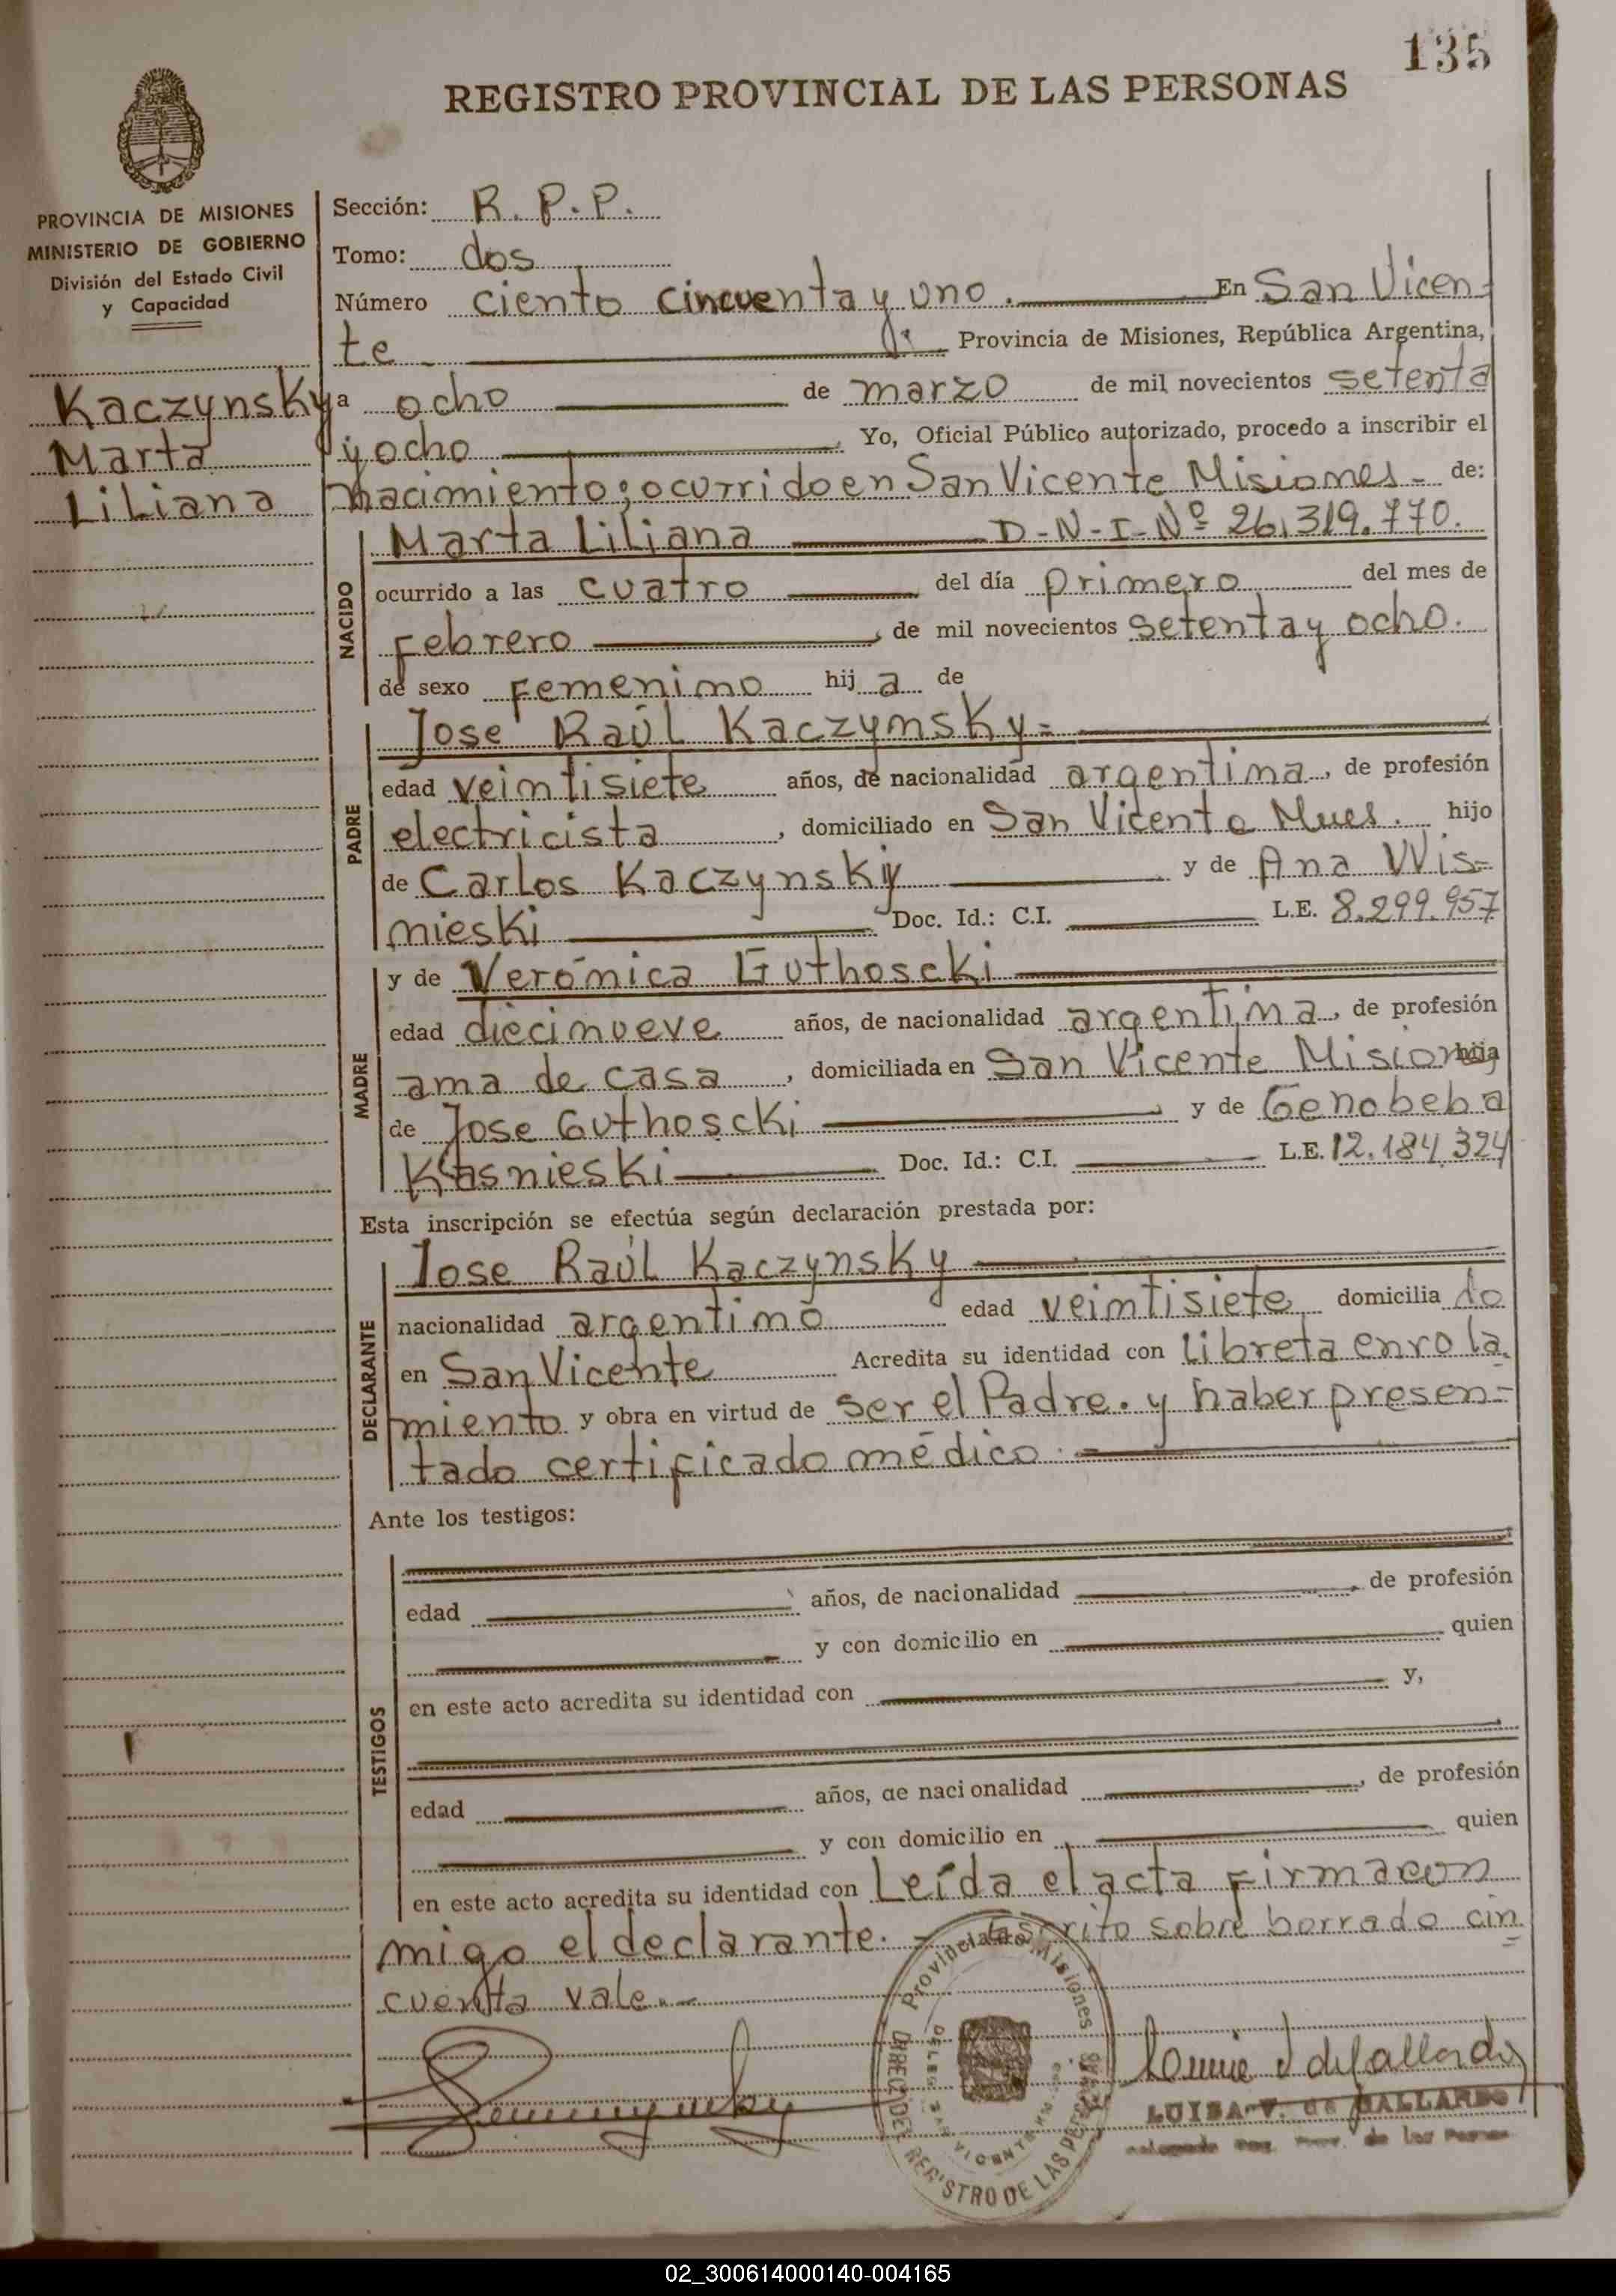 135
REGISTRO PROVINCIAL DE LAS PERSONAS
PROVINCIA DE MISIONES
MINISTERIO DE GOBIERNO
División del Estado Civil
y Capacidad
Kaczynsky
Marta
Liliana
Sección: R.P.P.
Tomo: dos
Número ciento cincuenta y uno. En San Vicen-
te Provincia de Misiones, República Argentina,
a ocho de marzo de mil novecientos setenta
y ocho Yo, Oficial Público autorizado, procedo a inscribir el
nacimiento; ocurrido en San Vicente Misiones - de:
Marta Liliana D-N-I-Nº 26.319.770.
NACIDO
ocurrido a las cuatro del día primero del mes de
Febrero, de mil novecientos setenta y ocho.
de sexo Femenino hij a de
PADRE
Jose Raúl Kaczynsky=
edad veintisiete años, de nacionalidad argentina, de profesión
electricista, domiciliado en San Vicente Mnes. hijo
de Carlos Kaczynsky y de Ana Wis=
nieski Doc. Id.: C.I. L.E. 8.299.957
MADRE
y de Verónica Guthoscki
edad diecinueve años, de nacionalidad argentina, de profesión
ama de casa, domiciliada en San Vicente Misiones hija
de Jose Guthoscki y de Genobeba
Kasnieski Doc. Id.: C.I. L.E. 12.184.324
Esta inscripción se efectúa según declaración prestada por:
DECLARANTE
Jose Raúl Kaczynsky
nacionalidad argentino edad veintisiete domicilia do
en San Vicente Acredita su identidad con Libreta enrola
miento y obra en virtud de ser el Padre. y haber presen=
tado certificado médico.
Ante los testigos:
TESTIGOS
edad años, de nacionalidad, de profesión
y con domicilio en quien
en este acto acredita su identidad con y,
edad años, de nacionalidad, de profesión
y con domicilio en quien
en este acto acredita su identidad con Leída el acta firmacon
migo el declarante. - Escrito sobre borrado cin
cuenta vale.-
Provincia de Misiones
REGISTRO DE LAS PERSONAS
LUISA V. de GALLARDO
02_300614000140-004165